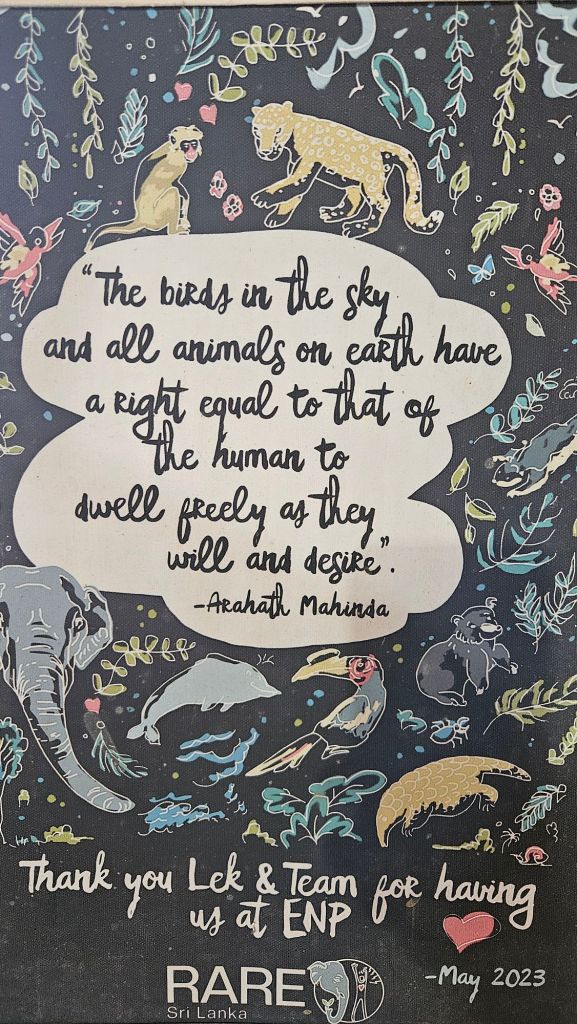 “The birds in the sky
and all animals on earth have
a right equal to that of
the human to
dwell freely as they
will and desire”.
-Arahath Mahinda
Thank you Lek & Team for having
us at ENP
-May 2023
RARE
Sri Lanka